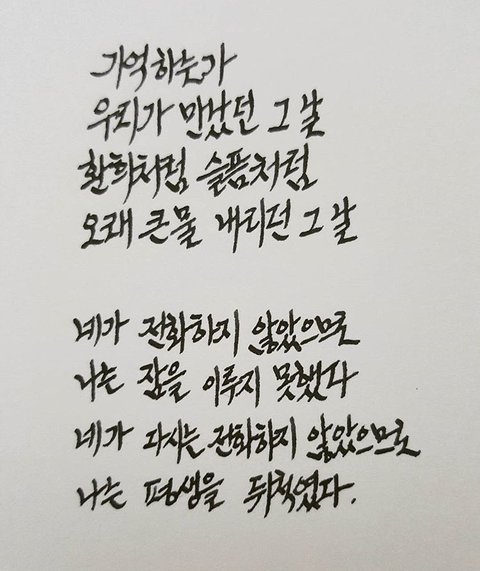 기억하는가
우리가 만났던 그 날
환희처럼 슬픔처럼
오래 큰물 내리던 그 날

네가 전화하지 않았으므로
나는 잠을 이루지 못했다
네가 다시는 전화하지 않았으므로
나는 평생을 뒤척였다.